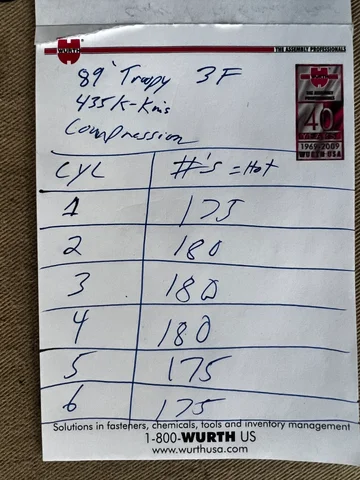 WÜRTH
THE ASSEMBLY PROFESSIONALS
89' Troopy 3F
435K-Km's
Compression
WÜRTH
40
1969/2009
WURTH USA
CYL #'s = Hot
1 175
2 180
3 180
4 180
5 175
6 175
Solutions in fasteners, chemicals, tools and inventory management
1-800-WURTH US
www.wurthusa.com